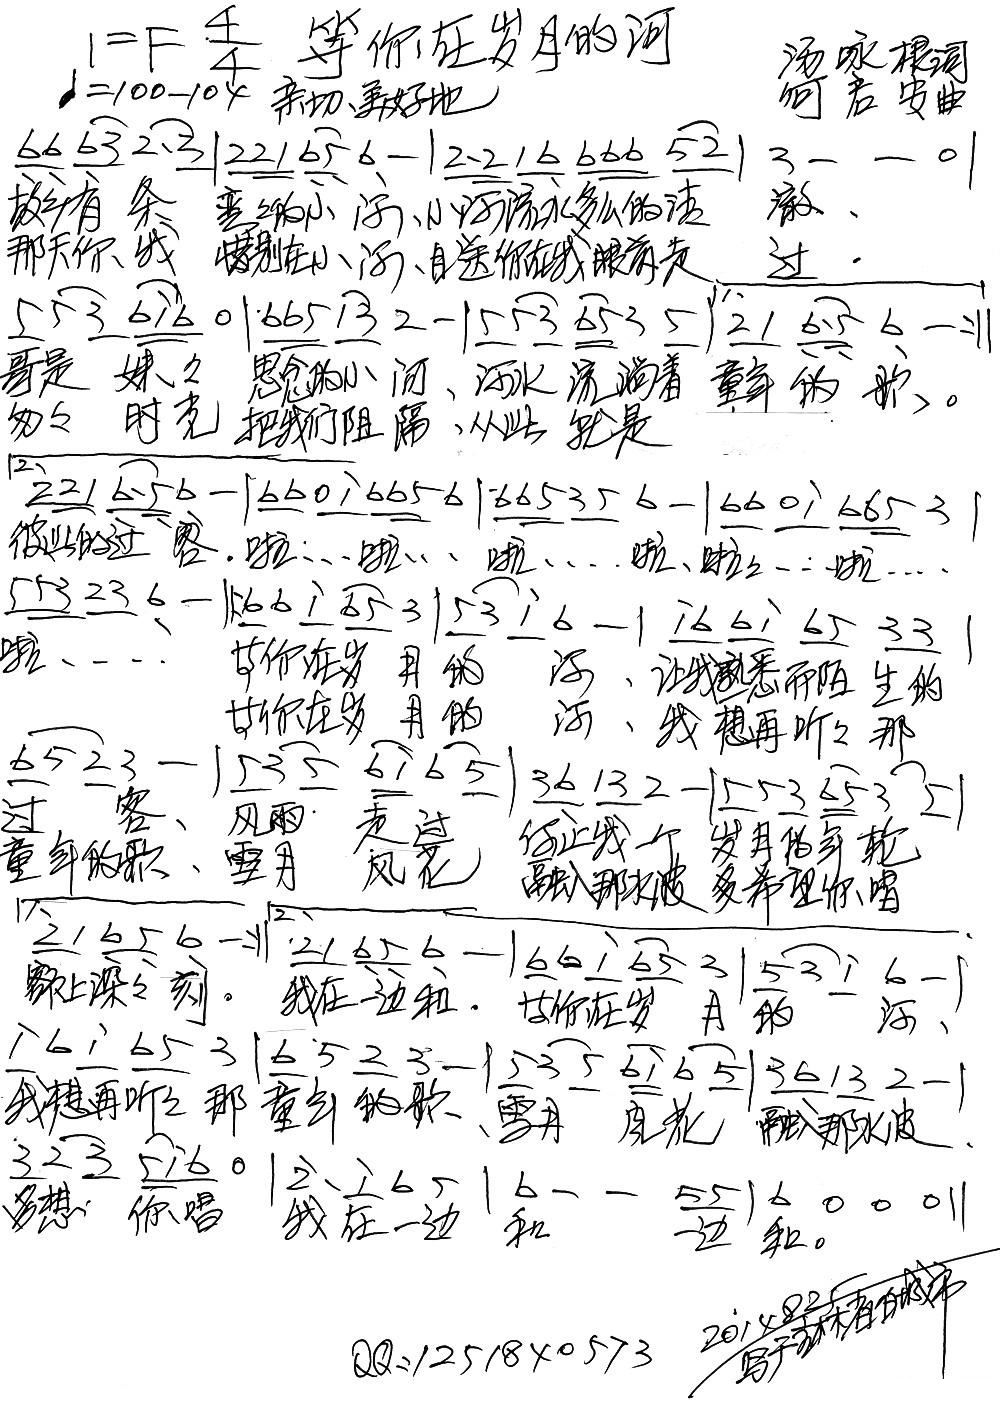 1=F 4/4 等你在岁月的河
汤咏根词
♩=100—104 亲切、美好地
何君安曲
66 63 2·3 | 221 65 6 — | 2·2 16 666 52 | 3 — — 0 |
故乡有条 弯弯的小河、小河流水多么的清澈、
那天你、我 惜别在小河、目送你在我眼前走过.
5 5 3 6i6 0 | 665 13 2 — | 5 5 3 65 3 5 | 1、 21 6·5 6 — :||
哥是 妹々 思念的小河、河水流淌着 童年的歌、。
匆々 时光 把我们阻隔、从此就是
2、 221 6·5 6 — | 66 0i 665 6 | 665 35 6 — | 66 0i 665 3 |
彼此的过客.啦:…啦… 啦.… 啦、啦々…啦….
553 23 6 — |: 66 i 65 3 | 53 i 6 — | i6 6i 65 33 |
啦、…. 等你在岁月的河、让我熟悉而陌生的
等你在岁月的河、我想再听々那
65 23 — | 5 3 5 6i 6 5 | 36 13 2 — | 5 5 3 65 3 5 |
过客、风雨 走过 你让我一个 岁月的年轮
童年的歌、雪月 风花 融入那水波 多希望你、唱
1、 21 65 6 — :|| 2、 21 65 6 — | 66 i 65 3 | 53 i 6 — |
深々刻。 我在一边和. 等你在岁月的河、
i 6 i 65 3 | 6 5 2 3 — | 5 3 5 6i 6 5 | 36 13 2 — |
我想再听々那童年的歌、雪月 风花 融入那水波.
3 2 3 5i6 0 | 2、i 6 5 | 6 — — 55 | 6 0 0 0 ||
多想 你、唱 我在一边 和 边 和。
2014.8.25
写于
QQ:1251840573